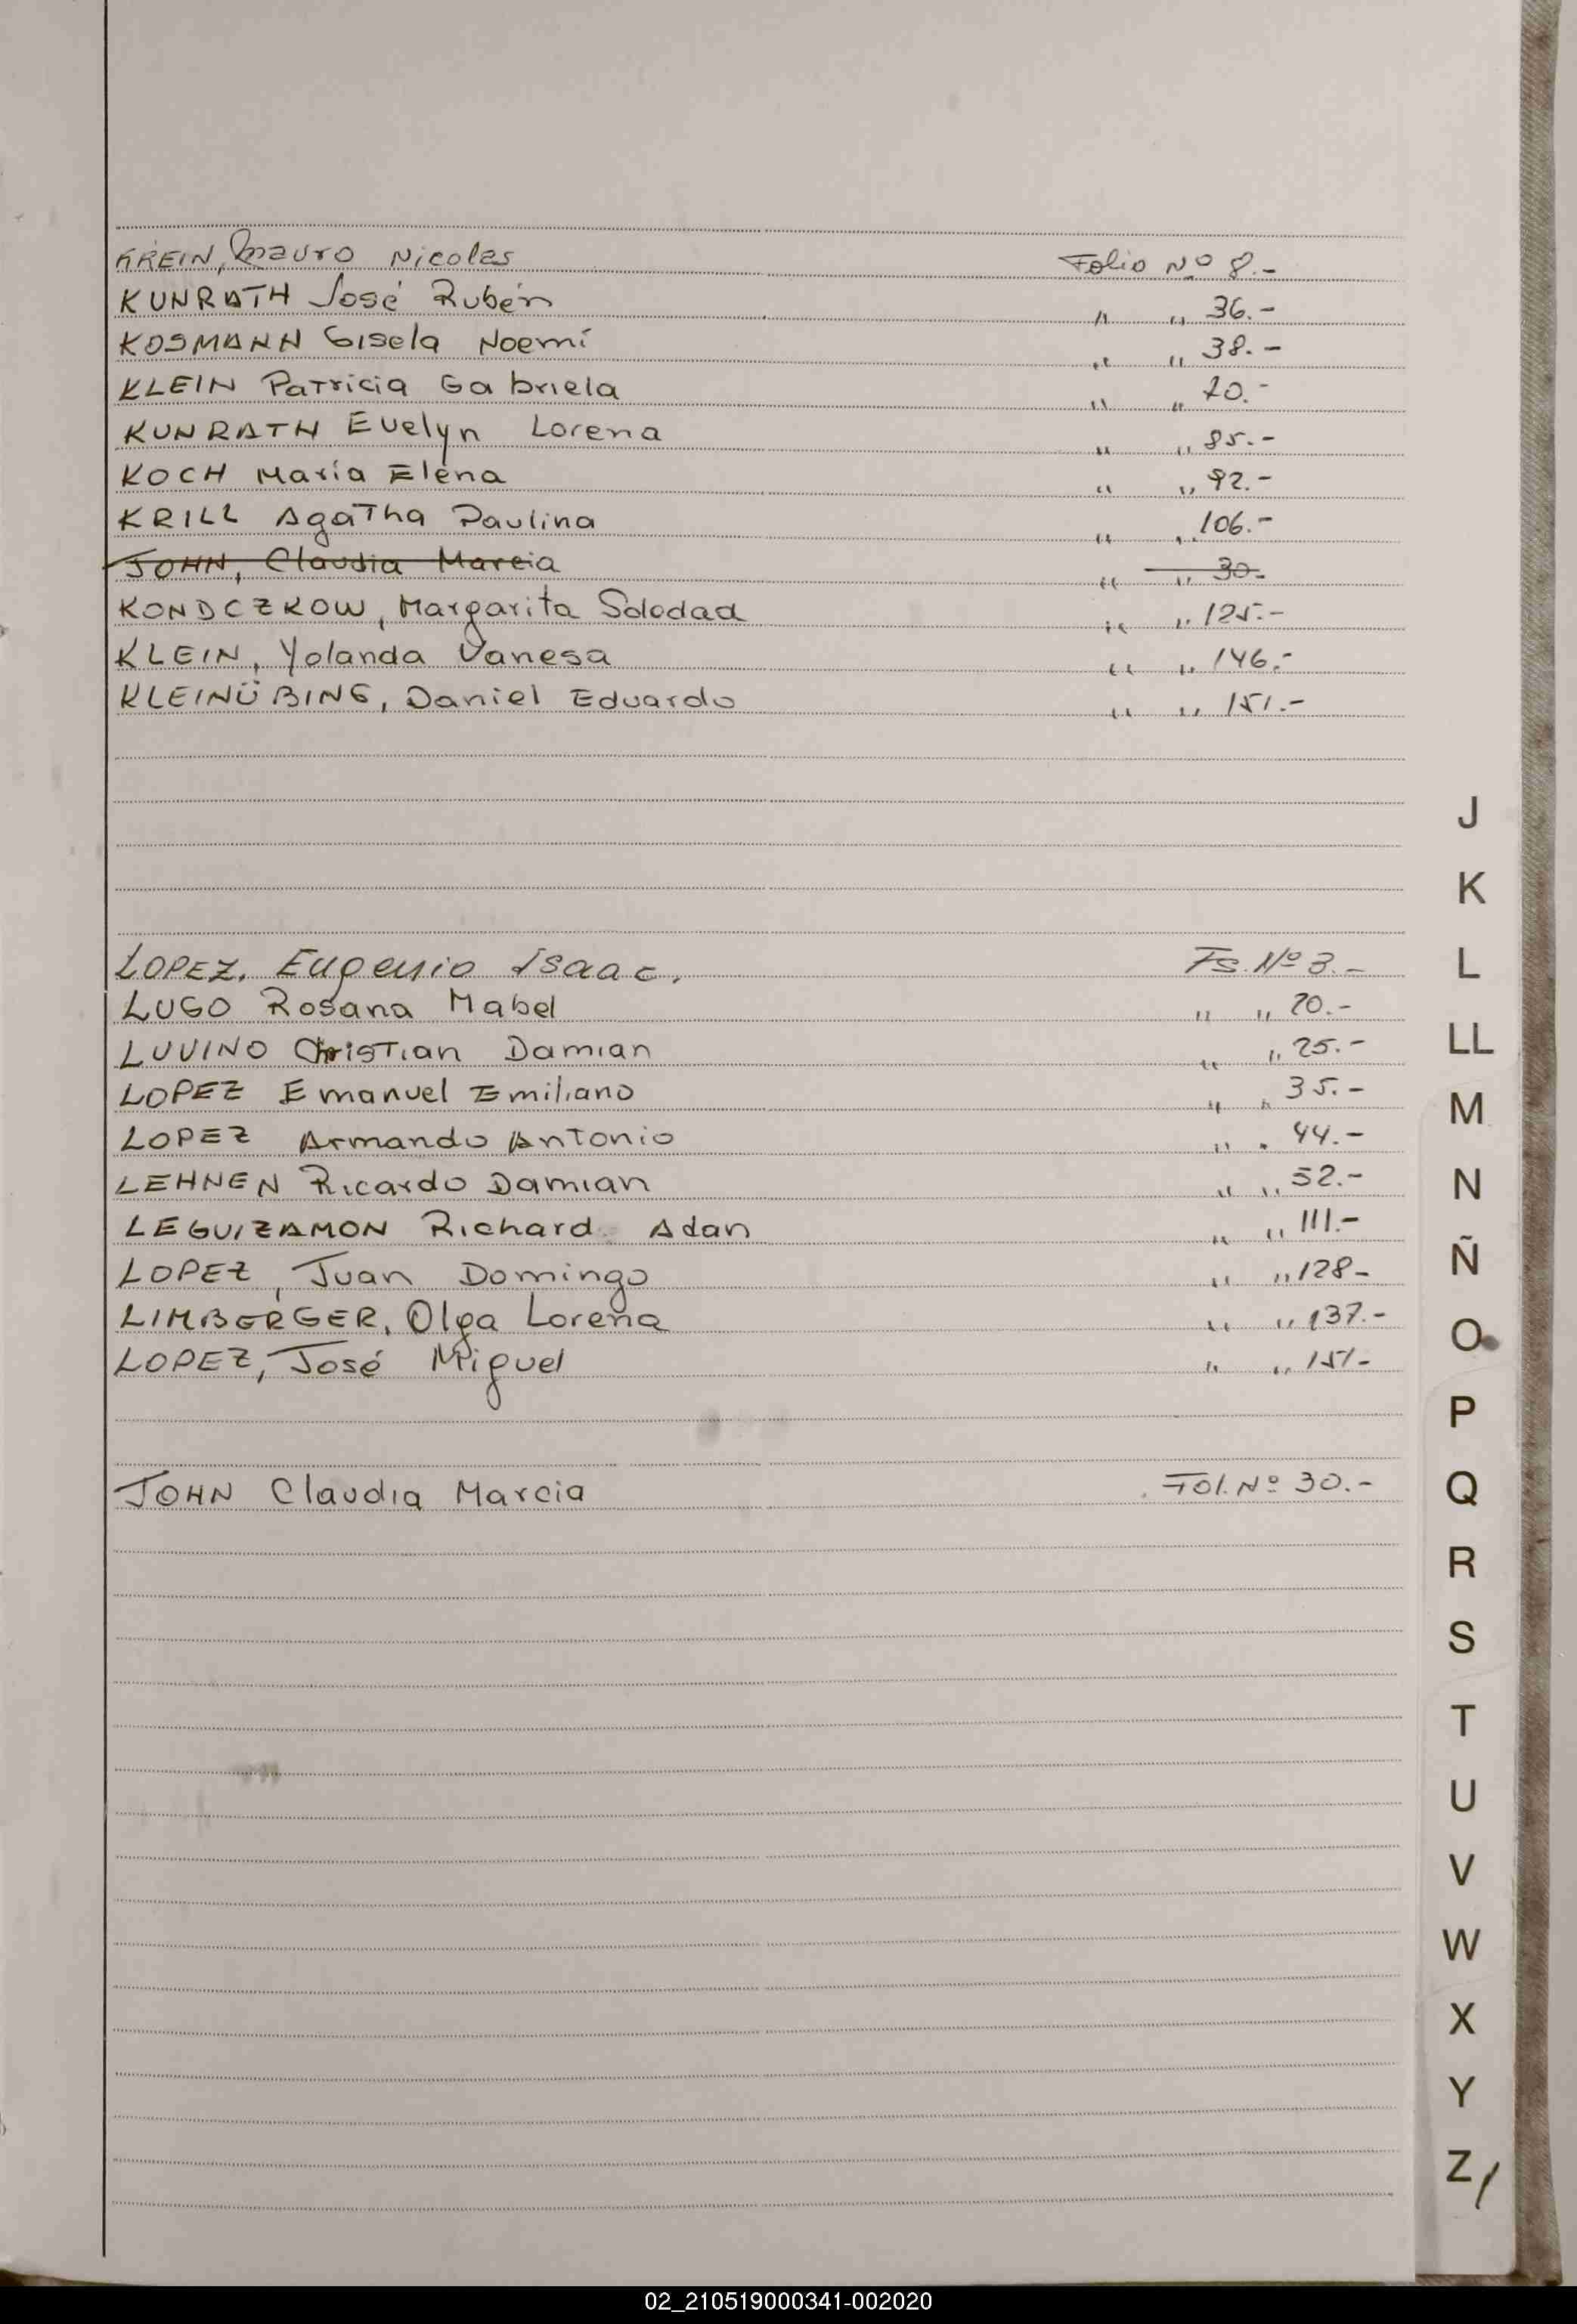 KREIN, Mauro Nicolas Folio Nº 8.-
KUNRATH José Rubén " " 36.-
KOSMANN Gisela Noemí " " 38.-
KLEIN Patricia Gabriela " " 70.-
KUNRATH Evelyn Lorena " " 85.-
KOCH María Elena " " 92.-
KRILL Agatha Paulina " " 106.-
JOHN, Claudia Marcia " " 30-
KONDCZKOW, Margarita Soledad " " 125.-
KLEIN, Yolanda Vanesa " " 146.-
KLEINÜBING, Daniel Eduardo " " 151.-
J
K
LOPEZ, Eugenio Isaac. Fs. Nº 3.-
L
LUGO Rosana Mabel " " 20.-
LUVINO Christian Damian " " 25.-
LL
LOPEZ Emanuel Emiliano " " 35.-
M
LOPEZ Armando Antonio " " 44.-
LEHNEN Ricardo Damian " " 52.-
N
LEGUIZAMON Richard Adan " " 111.-
Ñ
LOPEZ, Juan Domingo " " 128-
LIMBERGER, Olga Lorena " " 137.-
O
LOPEZ, José Miguel " " 151-
P
JOHN Claudia Marcia Fol. Nº 30.-
Q
R
S
T
U
V
W
X
Y
Z/
02_210519000341-002020